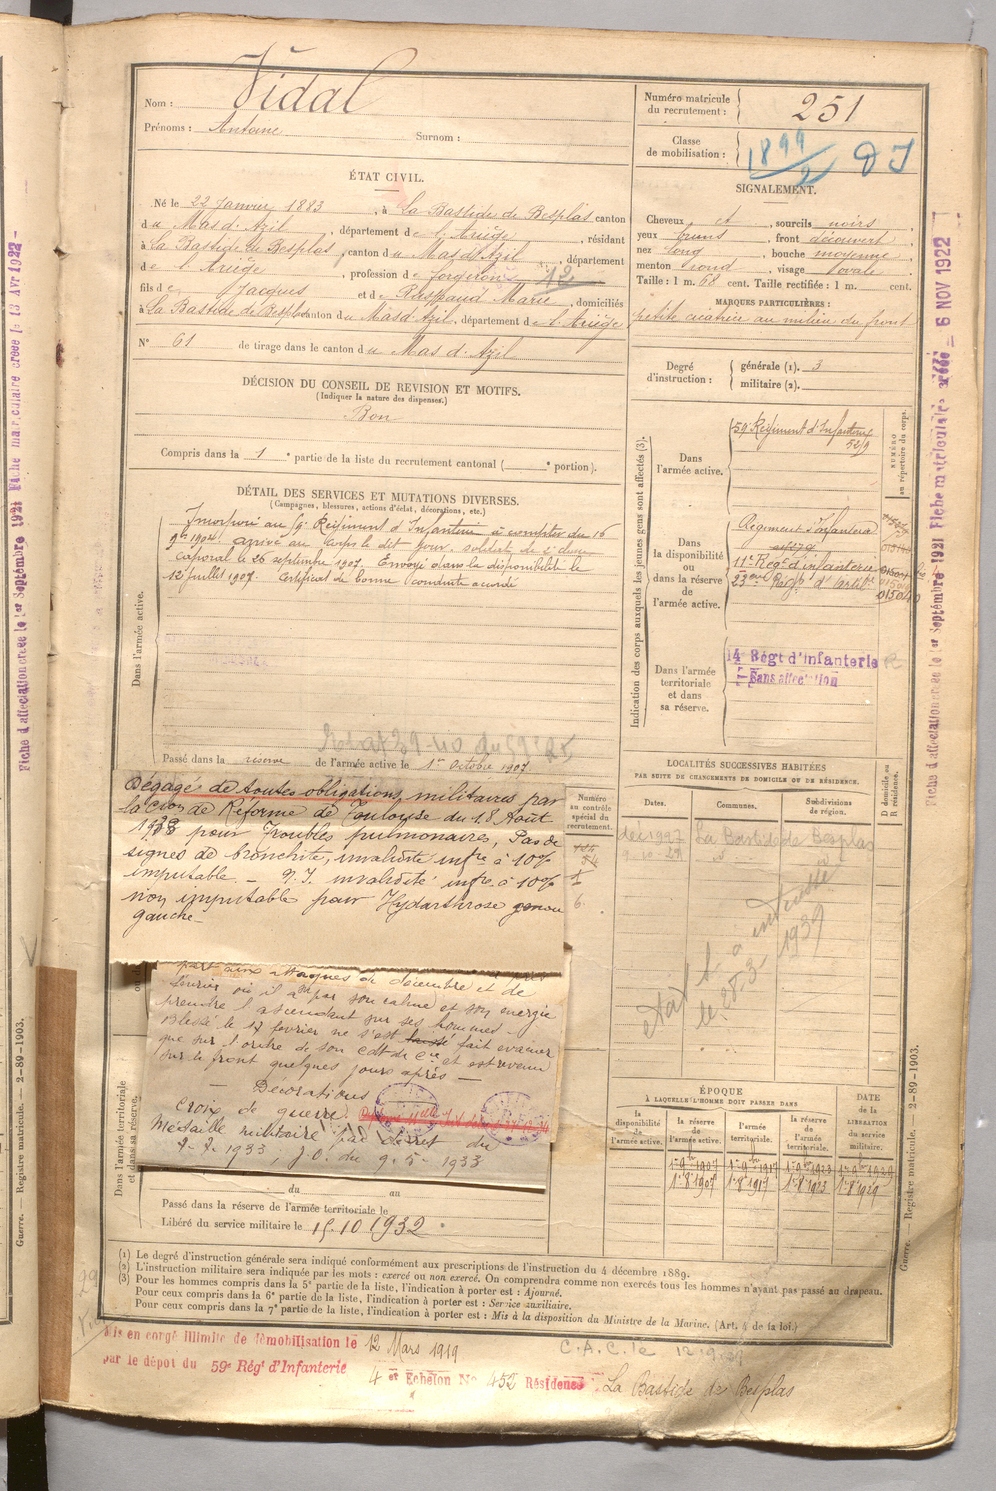 Nom : Vidal
Prénoms : Antoine Surnom :
Numéro matricule du recrutement : 251
Classe de mobilisation : 1899/2 DI
ÉTAT CIVIL.
Né le 22 Janvier 1883, à La Bastide de Besplas canton
du Mas d'Azil, département de l'Ariège, résidant
à La Bastide de Besplas, canton du Mas d'Azil, département
de l'Ariège, profession de forgeron 12
fils de Jacques et de Raspaud Marie, domiciliés
à La Bastide de Besplas canton du Mas d'Azil, département de l'Ariège
N° 61 de tirage dans le canton du Mas d'Azil
SIGNALEMENT.
Cheveux et, sourcils noirs,
yeux bruns, front découvert,
nez long, bouche moyenne,
menton rond, visage ovale.
Taille : 1 m. 68 cent. Taille rectifiée : 1 m. cent.
MARQUES PARTICULIÈRES :
petite cicatrice au milieu du front
Degré d'instruction : générale (1). 3
militaire (2).
DÉCISION DU CONSEIL DE REVISION ET MOTIFS.
(Indiquer la nature des dispenses.)
Bon
Compris dans la 1e partie de la liste du recrutement cantonal ( e portion).
DÉTAIL DES SERVICES ET MUTATIONS DIVERSES.
(Campagnes, blessures, actions d'éclat, décorations, etc.)
Dans l'armée active.
Incorporé au 59e Régiment d'Infanterie à compter du 16
9bre 1904 arrivé au corps le dit jour. soldat de 2e classe
caporal le 26 septembre 1907. Envoyé dans la disponibilité le
12 juillet 1907. Certificat de bonne conduite accordé
Passé dans la réserve de l'armée active le 1er Octobre 1907.
Indication des corps auxquels les jeunes gens sont affectés (3).
NUMÉRO au répertoire du corps.
Dans l'armée active.
59 Régiment d'Infanterie
Dans la disponibilité ou dans la réserve de l'armée active.
Régiment d'Infanterie
11e Régt d'infanterie
23eme Régt d'Artie
Dans l'armée territoriale et dans sa réserve.
14e Régt d'Infanterie
Sans affectation
Dégagé de toutes obligations militaires par
la Cion de Réforme de Toulouse du 18 Août
1938 pour Troubles pulmonaires, Pas de
signes de bronchite, invalidité infre à 10%
imputable. - P.I. invalidité infre à 10%
non imputable pour Hydarthrose genou
gauche -
part aux attaques de décembre et de
février où il a su par son calme et son énergie
prendre l'ascendant sur ses hommes -
Blessé le 17 février ne s'est laissé fait évacuer
que sur l'ordre de son Cdt de Cie et est revenu
sur le front quelques jours après -
Décorations
Croix de guerre.
Médaille militaire par décret du
2-2-1933, J.O. du 9-5-1933
Dans l'armée territoriale et dans sa réserve.
du au
Passé dans la réserve de l'armée territoriale le
Libéré du service militaire le 15.10.1932
Numéro au contrôle spécial du recrutement.
LOCALITÉS SUCCESSIVES HABITÉES
PAR SUITE DE CHANGEMENTS DE DOMICILE OU DE RÉSIDENCE.
Dates. Communes. Subdivisions de région. D domicile ou R résidence.
La Bastide de Besplas
ÉPOQUE
À LAQUELLE L'HOMME DOIT PASSER DANS
la disponibilité de l'armée active. la réserve de l'armée active. l'armée territoriale. la réserve de l'armée territoriale. DATE de la LIBÉRATION du service militaire.
1er 9bre 1907 1er 9bre 1917 1er 9bre 1923 1er 9bre 1929
1er 8 1907 1er 8 1917 1er 8 1923 1er 8 1929
(1) Le degré d'instruction générale sera indiqué conformément aux prescriptions de l'instruction du 4 décembre 1889.
(2) L'instruction militaire sera indiquée par les mots : exercé ou non exercé. On comprendra comme non exercés tous les hommes n'ayant pas passé au drapeau.
(3) Pour les hommes compris dans la 5e partie de la liste, l'indication à porter est : Ajourné.
Pour ceux compris dans la 6e partie de la liste, l'indication à porter est : Service auxiliaire.
Pour ceux compris dans la 7e partie de la liste, l'indication à porter est : Mis à la disposition du Ministre de la Marine. (Art. 4 de la loi.)
Mis en congé illimité de démobilisation le 12 Mars 1919
par le dépôt du 59e Régt d'Infanterie
4e Echelon No 452 Résidence : La Bastide de Besplas
C.A.C. le 12.9.
Guerre. — Registre matricule. — 2-89-1903.
Guerre. — Registre matricule. — 2-89-1903.
Fiche d'affectation créée le 1er Septembre 1921 Fiche matriculaire créée le 13 Avr 1922
Fiche d'affectation créée le 1er Septembre 1921 Fiche matriculaire créée - 6 NOV 1922